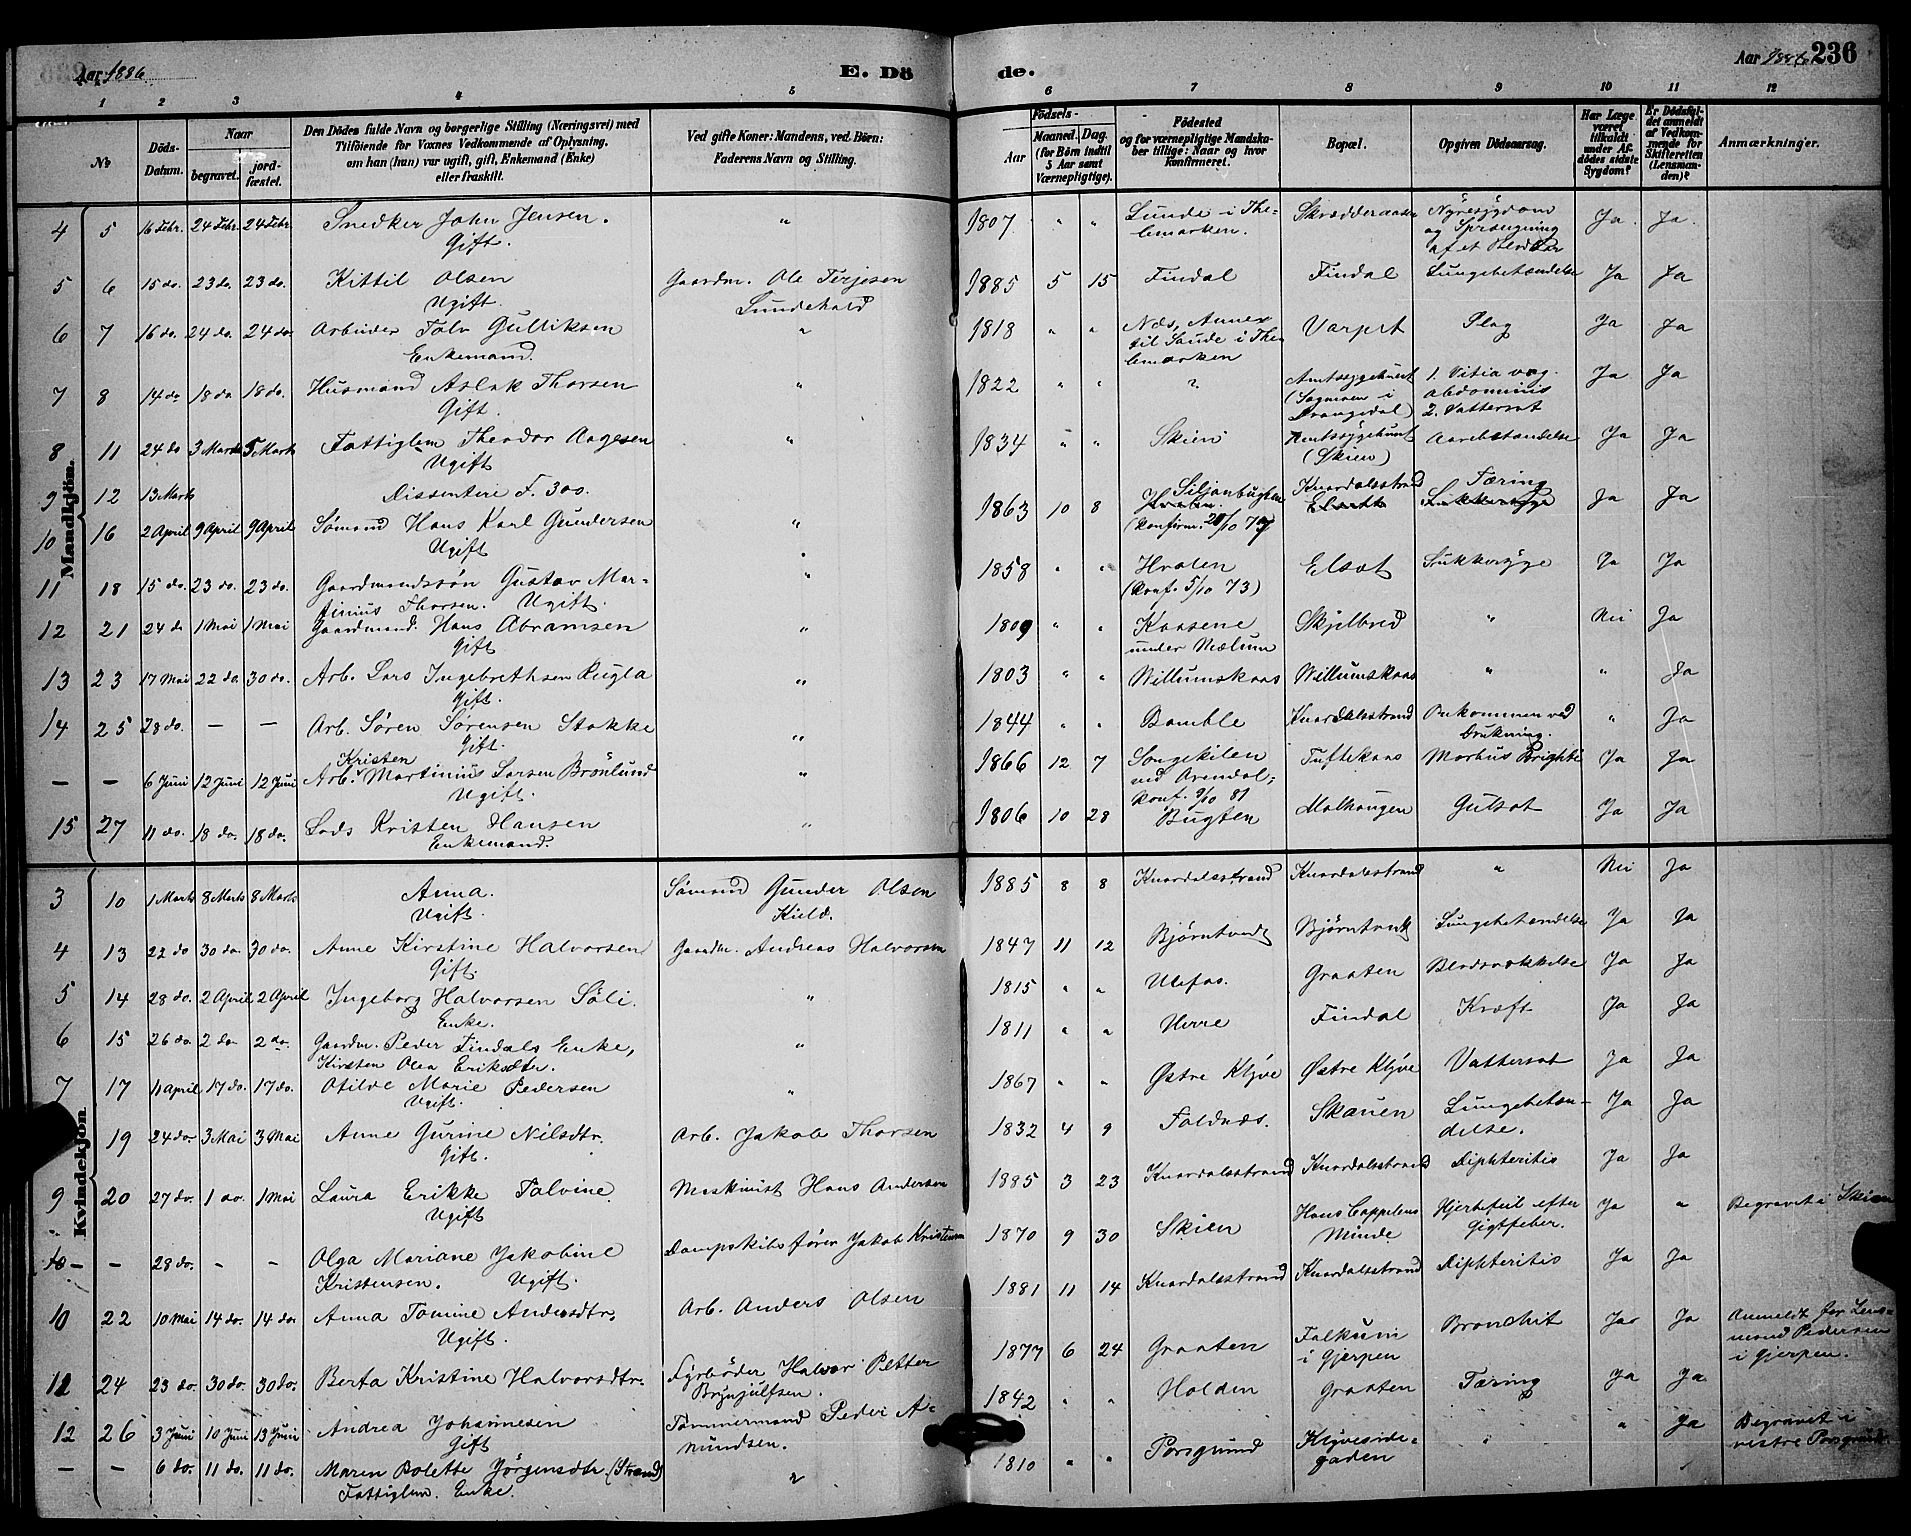 Aar 1886
E. Dö
de.
Aar 1886
236
1 2 3 4 5 6 7 8 9 10 11 12
No
Döds-Datum.
Naar
begravet.
jord-fæstet.
Den Dödes fulde Navn og borgerlige Stilling (Næringsvei) med
Tilföiende for Voxnes Vedkommende af Oplysning,
om han (hun) var ugift, gift, Enkemand (Enke)
eller fraskilt.
Ved gifte Koner: Mandens, ved Börn:
Faderens Navn og Stilling.
Födsels-
Aar
Maaned. Dag.
(for Børn indtil
5 Aar samt
Værnepligtige).
Födested
og for værnepligtige Mandska-
ber tillige: Naar og hvor
konfirmeret.
Bopæl.
Opgiven Dödsaarsag.
Har Læge
været
tilkaldt
under Af-
dødes sidste
Sygdom?
Er Dödsfal-
det anmeldt
af Vedkom-
mende for
Skifteretten
(Lensman-
den)?
Anmærkninger.
Mandkjön.
4 5 16 Febr. 24 Febr. 24 Febr. Snedker John Jensen. Gift. " 1807 " " Lunde i Thelemarken. Skrædderaasen Nyresygdom og Sprængning af et Blodkar Ja. Ja.
5 6 15 do. 23 do. 23 do. Kittil Olsen Ugift. Gaardm. Ole Terjesen Lundehald 1885 5 15 Findal Findal Lungebetændelse Ja Ja
6 7 16 do. 24 do. 24 do. Arbeider Talv Gulliksen Enkemand. " 1818 " " Næs, Annex til Saude i Thelemarken Varpet Plag Ja Ja
7 8 14 do 18 do 18 do. Husmand Aslak Thorsen Gift. " 1822 " " " Amtssygehuset ( i Drangedal) 1. Vitia abdominis 2. Vattersot Ja Ja
8 11 24 do 3 Marts 5 Marts Fattiglem Theodor Aagesen Ugift " 1834 " " Skien Amtssygehuset (Skien) Aarebetændelse Ja Ja
9 12 13 Marts Dissentere F. 300.
10 16 2 April 9 April 9 April Sømand Hans Karl Gundersen Ugift " 1863 10 8 Siljanbugten (Konfirm. 7/10 79) Knardalsstrand Tæring Ja Ja
11 18 15 do. 23 do. 23 do. Gaardmandssøn Gustav Martinius Thorsen. Ugift. " 1858 " " Hvalen (Konf. 5/10 73) Elset Sukkersyge Ja Ja
12 21 24 do 1 Mai 1 Mai Gaardmand. Hans Abramsen Gift " 1809 " " Kaasene under Mælum Skjelbred " Nei Ja
13 23 17 Mai 22 do 30 do. Arb. Lars Ingebrethsen Rugla Gift. " 1803 " " Willumskaas Willumskaas " " Ja
14 25 28 do. — — Arb. Søren Sørensen Stokke Gift. " 1844 " " Bamble Knardalsstrand Omkommen ved Drukning. " Ja
— — 6 Juni 12 Juni 12 Juni Arb. Kristen Martinius Larsen Brönlund Ugift. " 1866 12 7 Songekilen ved Arendal; Konf. 9/10 81 Tuftekaas Morbus Brightii Ja Ja
15 27 11 do. 18 do. 18 do. Lods Kristen Hansen Enkemand. " 1806 10 28 Bugten Molhaugen Gulsot Ja Ja
Kvindekjön.
3 10 1 Marts 8 Marts 8 Marts Anna. Ugift. Sømand Gunder Olsen Kield. 1885 8 8 Knardalsstrand Knardalsstrand " Nei Ja
4 13 22 do 30 do. 30 do. Anne Kirstine Halvorsen Gift. Gaardm. Andreas Halvorsen 1847 11 12 Bjørntvedt Bjørntvedt Lungebetændelse Ja Ja
5 14 28 do. 2 April 2 April Ingeborg Halvorsen Söli. Enke. " 1815 " " Ulefos. Graaten Blodsvækkelse Ja Ja
6 15 26 do. 2 do. 2 do. Gaardm. Peder Findals Enke, Kirsten Olea Eriksdtr. " 1811 " " Herre Findal Kræft Ja Ja
7 17 11 April 17 do. 17 do. Otilde Marie Pedersen Ugift. " 1867 " " Østre Klyve Østre Klyve Vattersot Ja Ja
19 24 do. 3 Mai 3 Mai Anne Gurine Nilsdtr. Gift. Arb. Jakob Thorsen 1832 4 9 Foldnæs. Skauen Lungebetændelse. Ja Ja
9 20 27 do. 1 do. 1 Mai Laura Erikke Talvine Ugift Maskinist Hans Andersen 1885 3 23 Knardalsstrand Knardalsstrand Diphteritis Ja Ja
— — 28 do. — — Olga Mariane Jakobine Kristensen. Ugift. Dampskibsfører Jakob Kristensen 1870 9 30 Skien Hans Cappelens Minde Hjertefeil efter Gigtfeber. Ja " Begravet i Skien
10 22 10 Mai 14 do. 14 do Anna Tomine Andersdtr. Ugift. Arb. Anders Olsen 1881 11 14 Knardalsstrand Knardalsstrand Diphteritis Ja Ja
11 24 23 do. 30 do. 30 do. Berta Kristine Halvorsdtr. Fyrbøder Halvor Petter Brynjulfsen. 1877 6 24 Graaten Falkum i Gjerpen Bronchit Ja Ja Anmeldt for Lensmand Pedersen i Gjerpen.
12 26 3 Juni 10 Juni 13 Juni Andrea Johannesen Gift Tømmermand Peder Amundsen. 1842 " " Holden Graaten Tæring Ja Ja
— — 6 do. 11 do. 11 do. Maren Bolette Jörgensdtr. (Strand) Fattiglem. Enke. " 1810 " " Porsgrund Klyvesidegaden " " Ja Begravet i vestre Porsgrund.